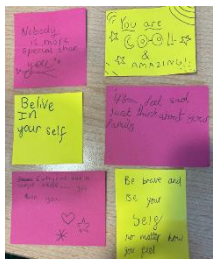 Nobody
is more
special than
you
You are
COOL
&
AMAZING!
Belive
In
your self
you feel sad
Just think about your
family
you
Be brave and
Be your
self
no matter how
you feel